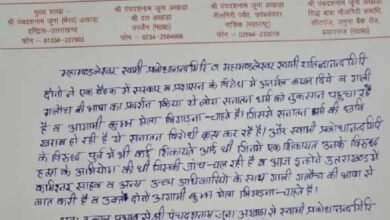 मुख्य शाखा -
श्री पंचदशनाम जूना अखाड़ा
हरिद्वार-उत्तराखण्ड
फोन - 01334-227903
श्री पंचदशनाम जूना अखाड़ा
श्री दत्त अखाड़ा
उज्जैन (म.प्र.)
फोन - 0734-2584668
श्री पंचदशनाम जूना अखाड़ा
नीलगिरी पर्वत, त्र्यंबकेश्वर
नासिक (महाराष्ट्र)
श्री पंचदशनाम जूना
सिद्ध बाबा मौजगिरी समाधि,
कीटगंज, जमुना बैंक
प्रयागराज (उ.प्र.)
फोन
महामण्डलेश्वर स्वामी प्रबोधानन्दगिरी व महामण्डलेश्वर स्वामी यतिन्द्रानन्दगिरी
दोनों ने एक बैठक में सरकार व प्रशासन के विरोध में अनर्गल बयान दिये व गाली
गलौच की भाषा का प्रदर्शन किया ये लोग सनातन धर्म को नुकसान पहुंचा रहे
हैं व आगामी कुम्भ मेला बिगाड़ना चाहते हैं। जिससे सनातन धर्म की छवि
खराब हो रही है ये सनातन विरोधी कृत्य कर रहे हैं। और स्वामी प्रबोधानन्दगिरी
के विरुद्ध पूर्व में भी कई शिकायतें आई थी जिनमें एक शिकायत उनके विरुद्ध
हत्या के आरोप की थी जिसकी जांच चल रही है व आज इन्होंने उत्तराखण्ड में
कमिश्नर साहब व अन्य उच्च अधिकारियों के साथ गाली गलौच की भाषा से
बात करी है व उक्त दोनों आगामी कुम्भ मेला बिगाड़ना चाहते हैं।
श्री पंचदशनाम जूना अखाड़ा से स्वामी